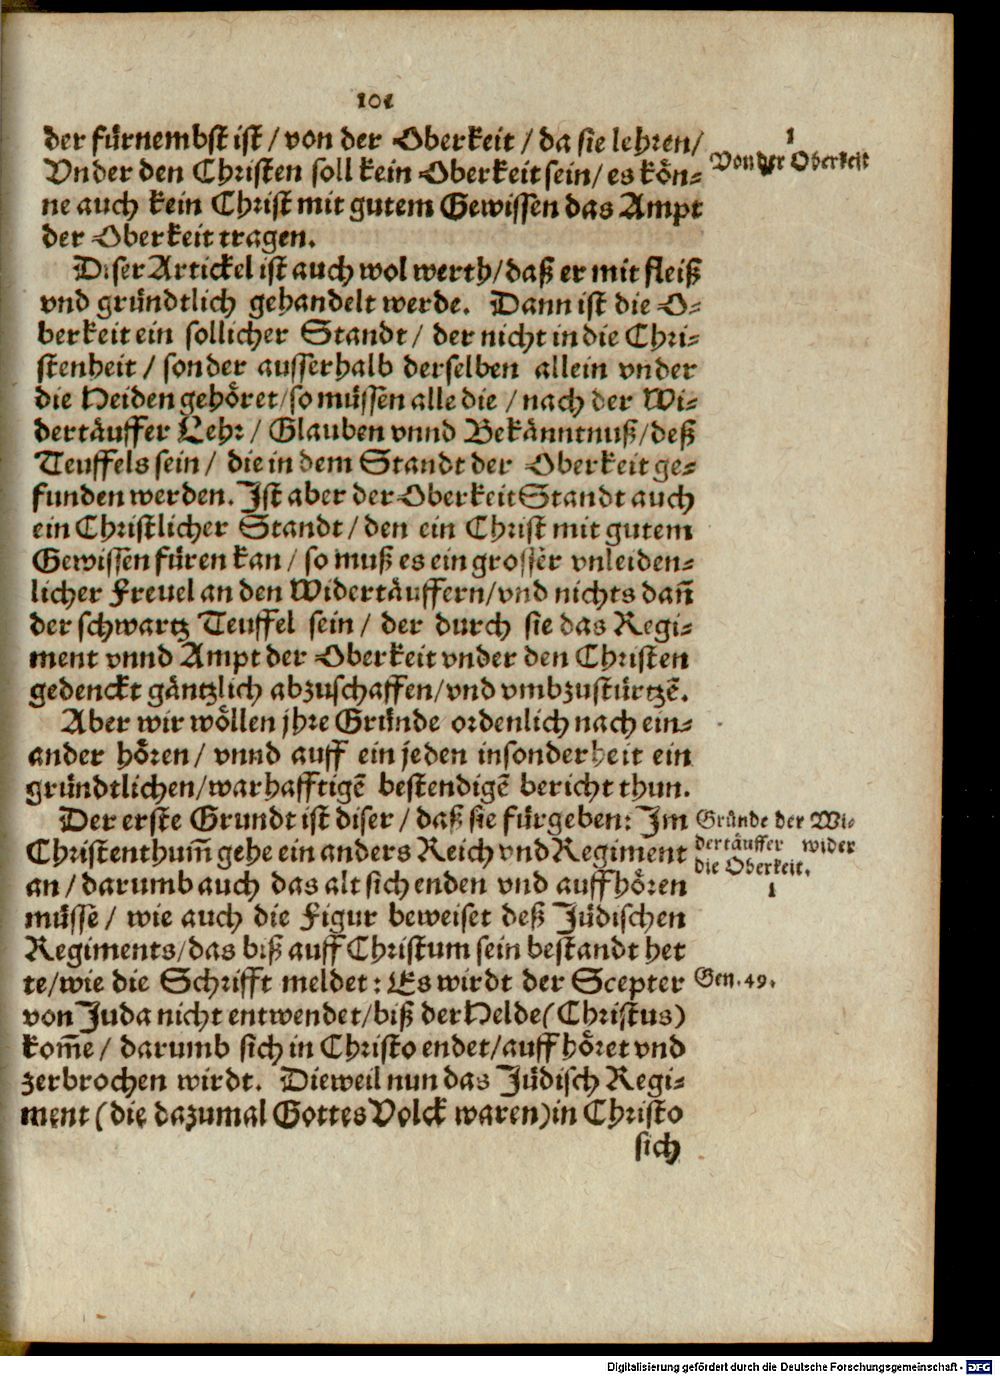 101
der fürnembst ist / von der Oberkeit / da sie lehren /
Vnder den Christen soll kein Oberkeit sein / es kön⸗
ne auch kein Christ mit gutem Gewissen das Ampt
der Oberkeit tragen.
1
Von der Oberkeit
Diser Artickel ist auch wol werth / daß er mit fleiß
vnd gründtlich gehandelt werde. Dann ist die O⸗
berkeit ein sollicher Standt / der nicht in die Chri⸗
stenheit / sonder ausserhalb derselben allein vnder
die Heiden gehöret / so müssen alle die / nach der Wi⸗
dertäuffer Lehr / Glauben vnnd Bekänntnuß / deß
Teuffels sein / die in dem Standt der Oberkeit ge⸗
funden werden. Ist aber der Oberkeit Standt auch
ein Christlicher Standt / den ein Christ mit gutem
Gewissen füren kan / so muß es ein grosser vnleiden⸗
licher Freuel an den Widertäuffern / vnd nichts dañ
der schwartz Teuffel sein / der durch sie das Regi⸗
ment vnnd Ampt der Oberkeit vnder den Christen
gedenckt gäntzlich abzuschaffen / vnd vmbzustürtzẽ.
Aber wir wöllen jhre Gründe ordenlich nach ein⸗
ander hören / vnnd auff ein jeden insonderheit ein
gründtlichen / warhafftigẽ bestendigẽ bericht thun.
Der erste Grundt ist diser / daß sie fürgeben: Im
Christenthum̃ gehe ein anders Reich vnd Regiment
an / darumb auch das alt sich enden vnd auffhören
müsse / wie auch die Figur beweiset deß Jüdischen
Regiments / das biß auff Christum sein bestandt het
te / wie die Schrifft meldet: Es wirdt der Scepter
von Juda nicht entwendet / biß der Helde (Christus)
kom̃e / darumb sich in Christo endet / auffhöret vnd
zerbrochen wirdt. Dieweil nun das Jüdisch Regi⸗
ment (die dazumal Gottes Volck waren) in Christo
sich
Gründe der Wi⸗
dertäuffer wider
die Oberkeit.
1
Gen. 49.
Digitalisierung gefördert durch die Deutsche Forschungsgemeinschaft - DFG